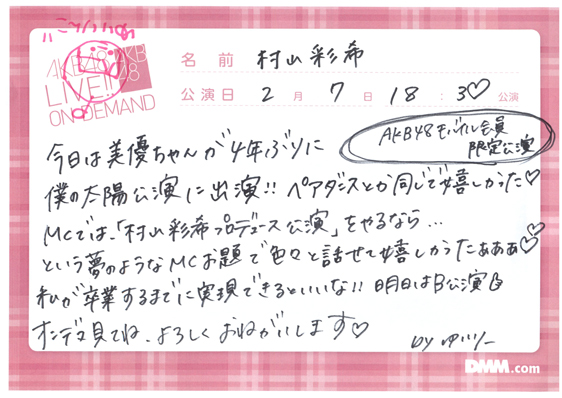 AKB48
LIVE!!
ON DEMAND
名前 村山彩希
公演日 2月7日 18:30♡公演
AKB48モバイル会員
限定公演
今日は美優ちゃんが4年ぶりに
僕の太陽公演に出演!! ペアダンスとか同じで嬉しかった♡
MCでは、「村山彩希プロデュース公演」をやるなら...
という夢のようなMCお題で色々と話せて嬉しかったぁぁぁ♡
私が卒業するまでに実現できるといいな!! 明日はB公演
オンデマ見てね、よろしくおねがいします♡
by ゆいりー
DMM.com